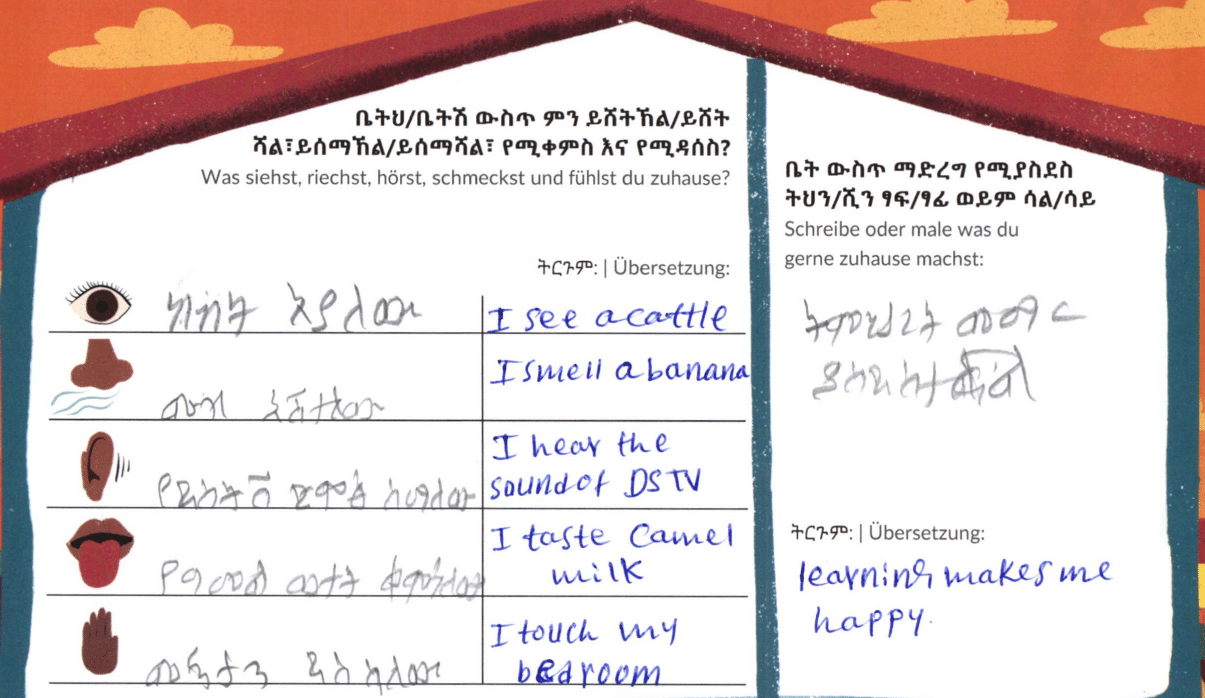 ቤትህ/ቤትሽ ውስጥ ምን ይሸትኸል/ይሸት
ሻል፣ይሰማኸል/ይሰማሻል፣ የሚቀምስ እና የሚዳሰስ?
Was siehst, riechst, hörst, schmeckst und fühlst du zuhause?
ትርጉም: | Übersetzung:
I see a cattle
I smell a banana
ሙዝ
I hear the
sound of DSTV
I taste Camel
milk
የግመል ወተት
I touch my
bedroom
ቤት ውስጥ ማድረግ የሚያስደስ
ትህን/ሺን ፃፍ/ፃፊ ወይም ሳል/ሳይ
Schreibe oder male was du
gerne zuhause machst:
ትምህርት መማር
ትርጉም: | Übersetzung:
learning makes me
happy.